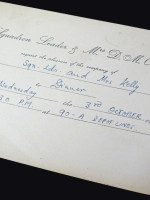 Squadron Leader & Mrs D. M.
request the pleasure of the company of
Sqn. Ldr. and Mrs Kelly
Dinner
Wednesday the 3rd OCTOBER
P.M. at 90-A